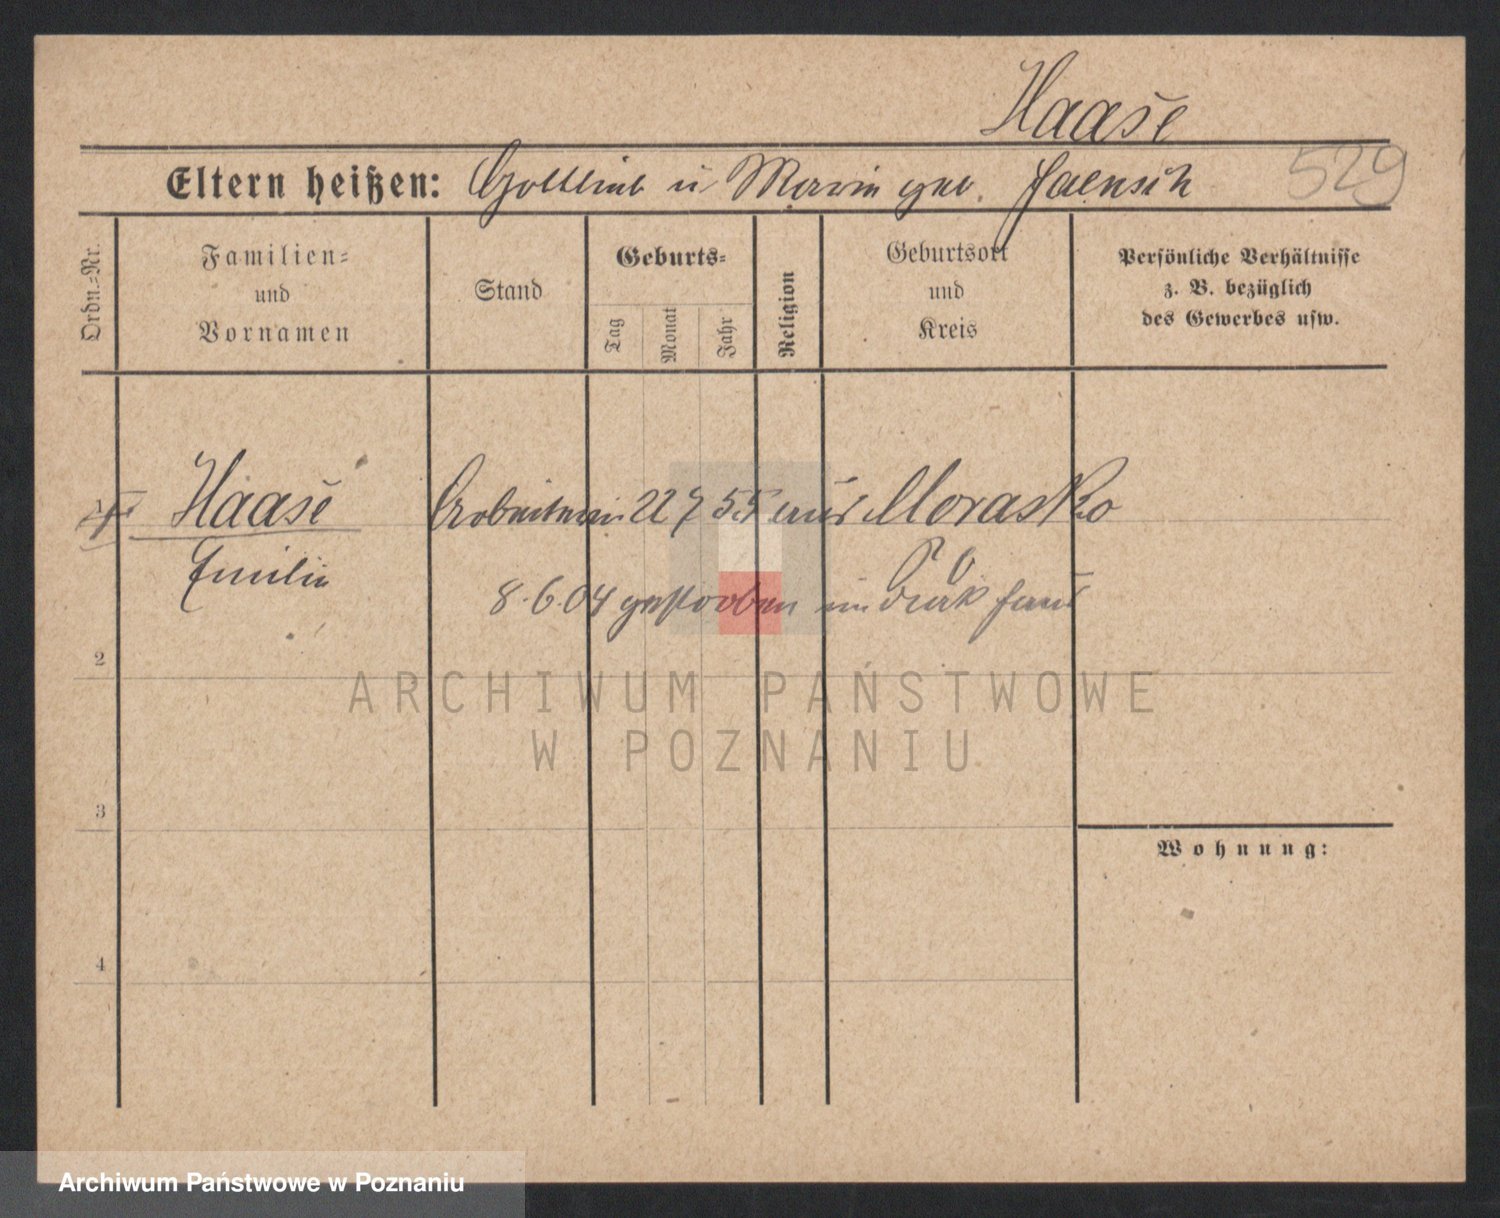 Haase
529
Eltern heißen: Gottlieb u Maria geb. Jaensch
Ordn.=Nr.
Familien=
und
Vornamen
Stand
Geburts=
Tag
Monat
Jahr
Religion
Geburtsort
und
Kreis
Persönliche Verhältnisse
z. B. bezüglich
des Gewerbes usw.
Haase Arbeiterin 22 7 55 Morasko
Emilie
8.6.04 gestorben im
2
ARCHIWUM PAŃSTWOWE
W POZNANIU
3
Wohnung:
4
Archiwum Państwowe w Poznaniu